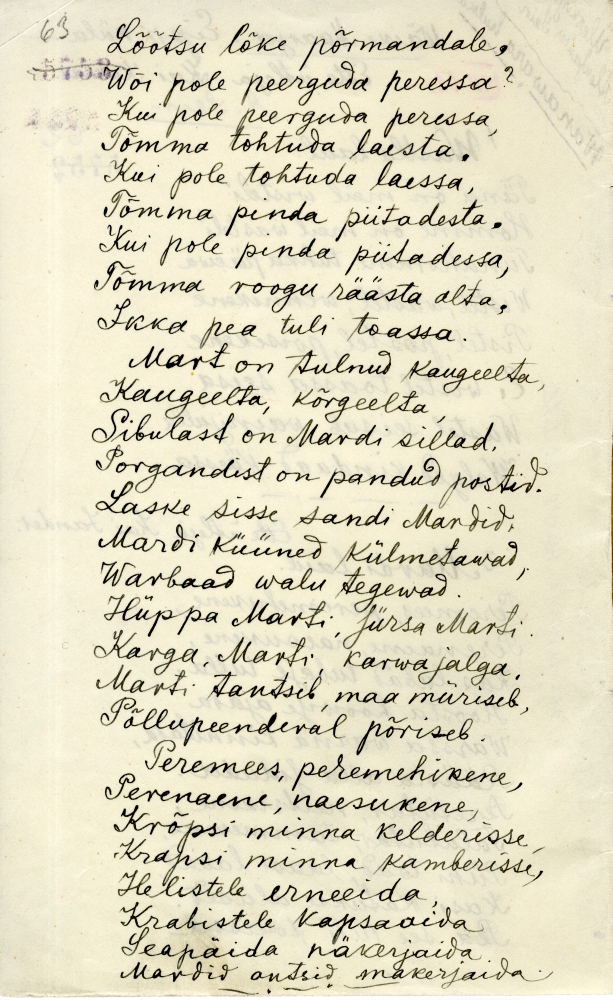 63
Löötsu lõke põrmandale,
Wõi pole peerguda peressa?
Kui pole peerguda peressa,
Tõmma tohtuda laesta.
Kui pole tohtuda laessa,
Tõmma pinda piitadesta.
Kui pole pinda piitadessa,
Tõmma roogu räästa alta,
Ikka pea tuli toassa.
Mart on tulnud kaugeelta,
Kaugeelta, kõrgeelta,
Sibulast on Mardi sillad,
Porgandist on pandud postid.
Laske sisse sandi Mardid,
Mardi küüned külmetawad,
Warbaad walu tegewad.
Hüppa Marti, jürsa Marti.
Karga, Marti, karwajalga,
Marti tantsib, maa müriseb,
Põllupeenderal põriseb.
Peremees, peremehikene,
Perenaene, naesukene,
Krõpsi minna kelderisse,
Krapsi minna kamberisse,
Helistele erneeida,
Krabistele kapsaaida
Seapäida näkerjaida
Mardid ontsid makerjaida.